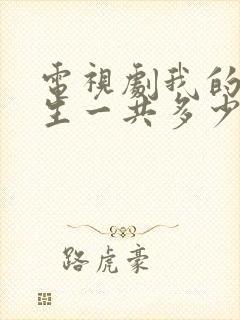 電視劇我的
生一共多少
路虎豪